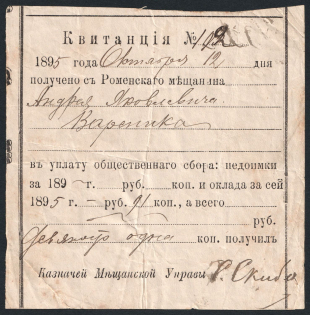 Квитанція №
1895 года Октября 12 дня
получено съ Роменскаго мѣщанина
Андрея Яковлевича
Вареника
въ уплату общественнаго сбора: недоимки
за 189 – г. руб. коп. и оклада за сей
1895 г. – руб. 91 коп., а всего
руб.
девяносто одна коп. получилъ
Казначей Мѣщанской Управы